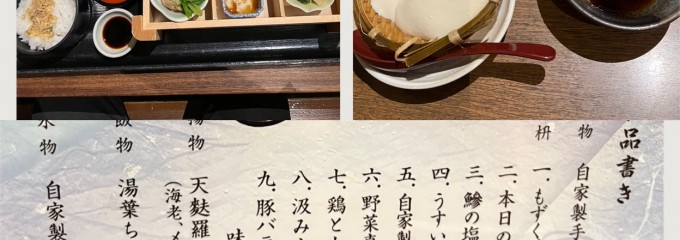 品書き
物 自家製手
枡 一．もずく
二．本日の
三．鰺の塩
四．うすい
五．自家製
六．野菜
七．鶏と
八．汲み
九．豚バ
味
揚物 天麩羅
（海老、
飯物 湯葉ち
水物 自家製